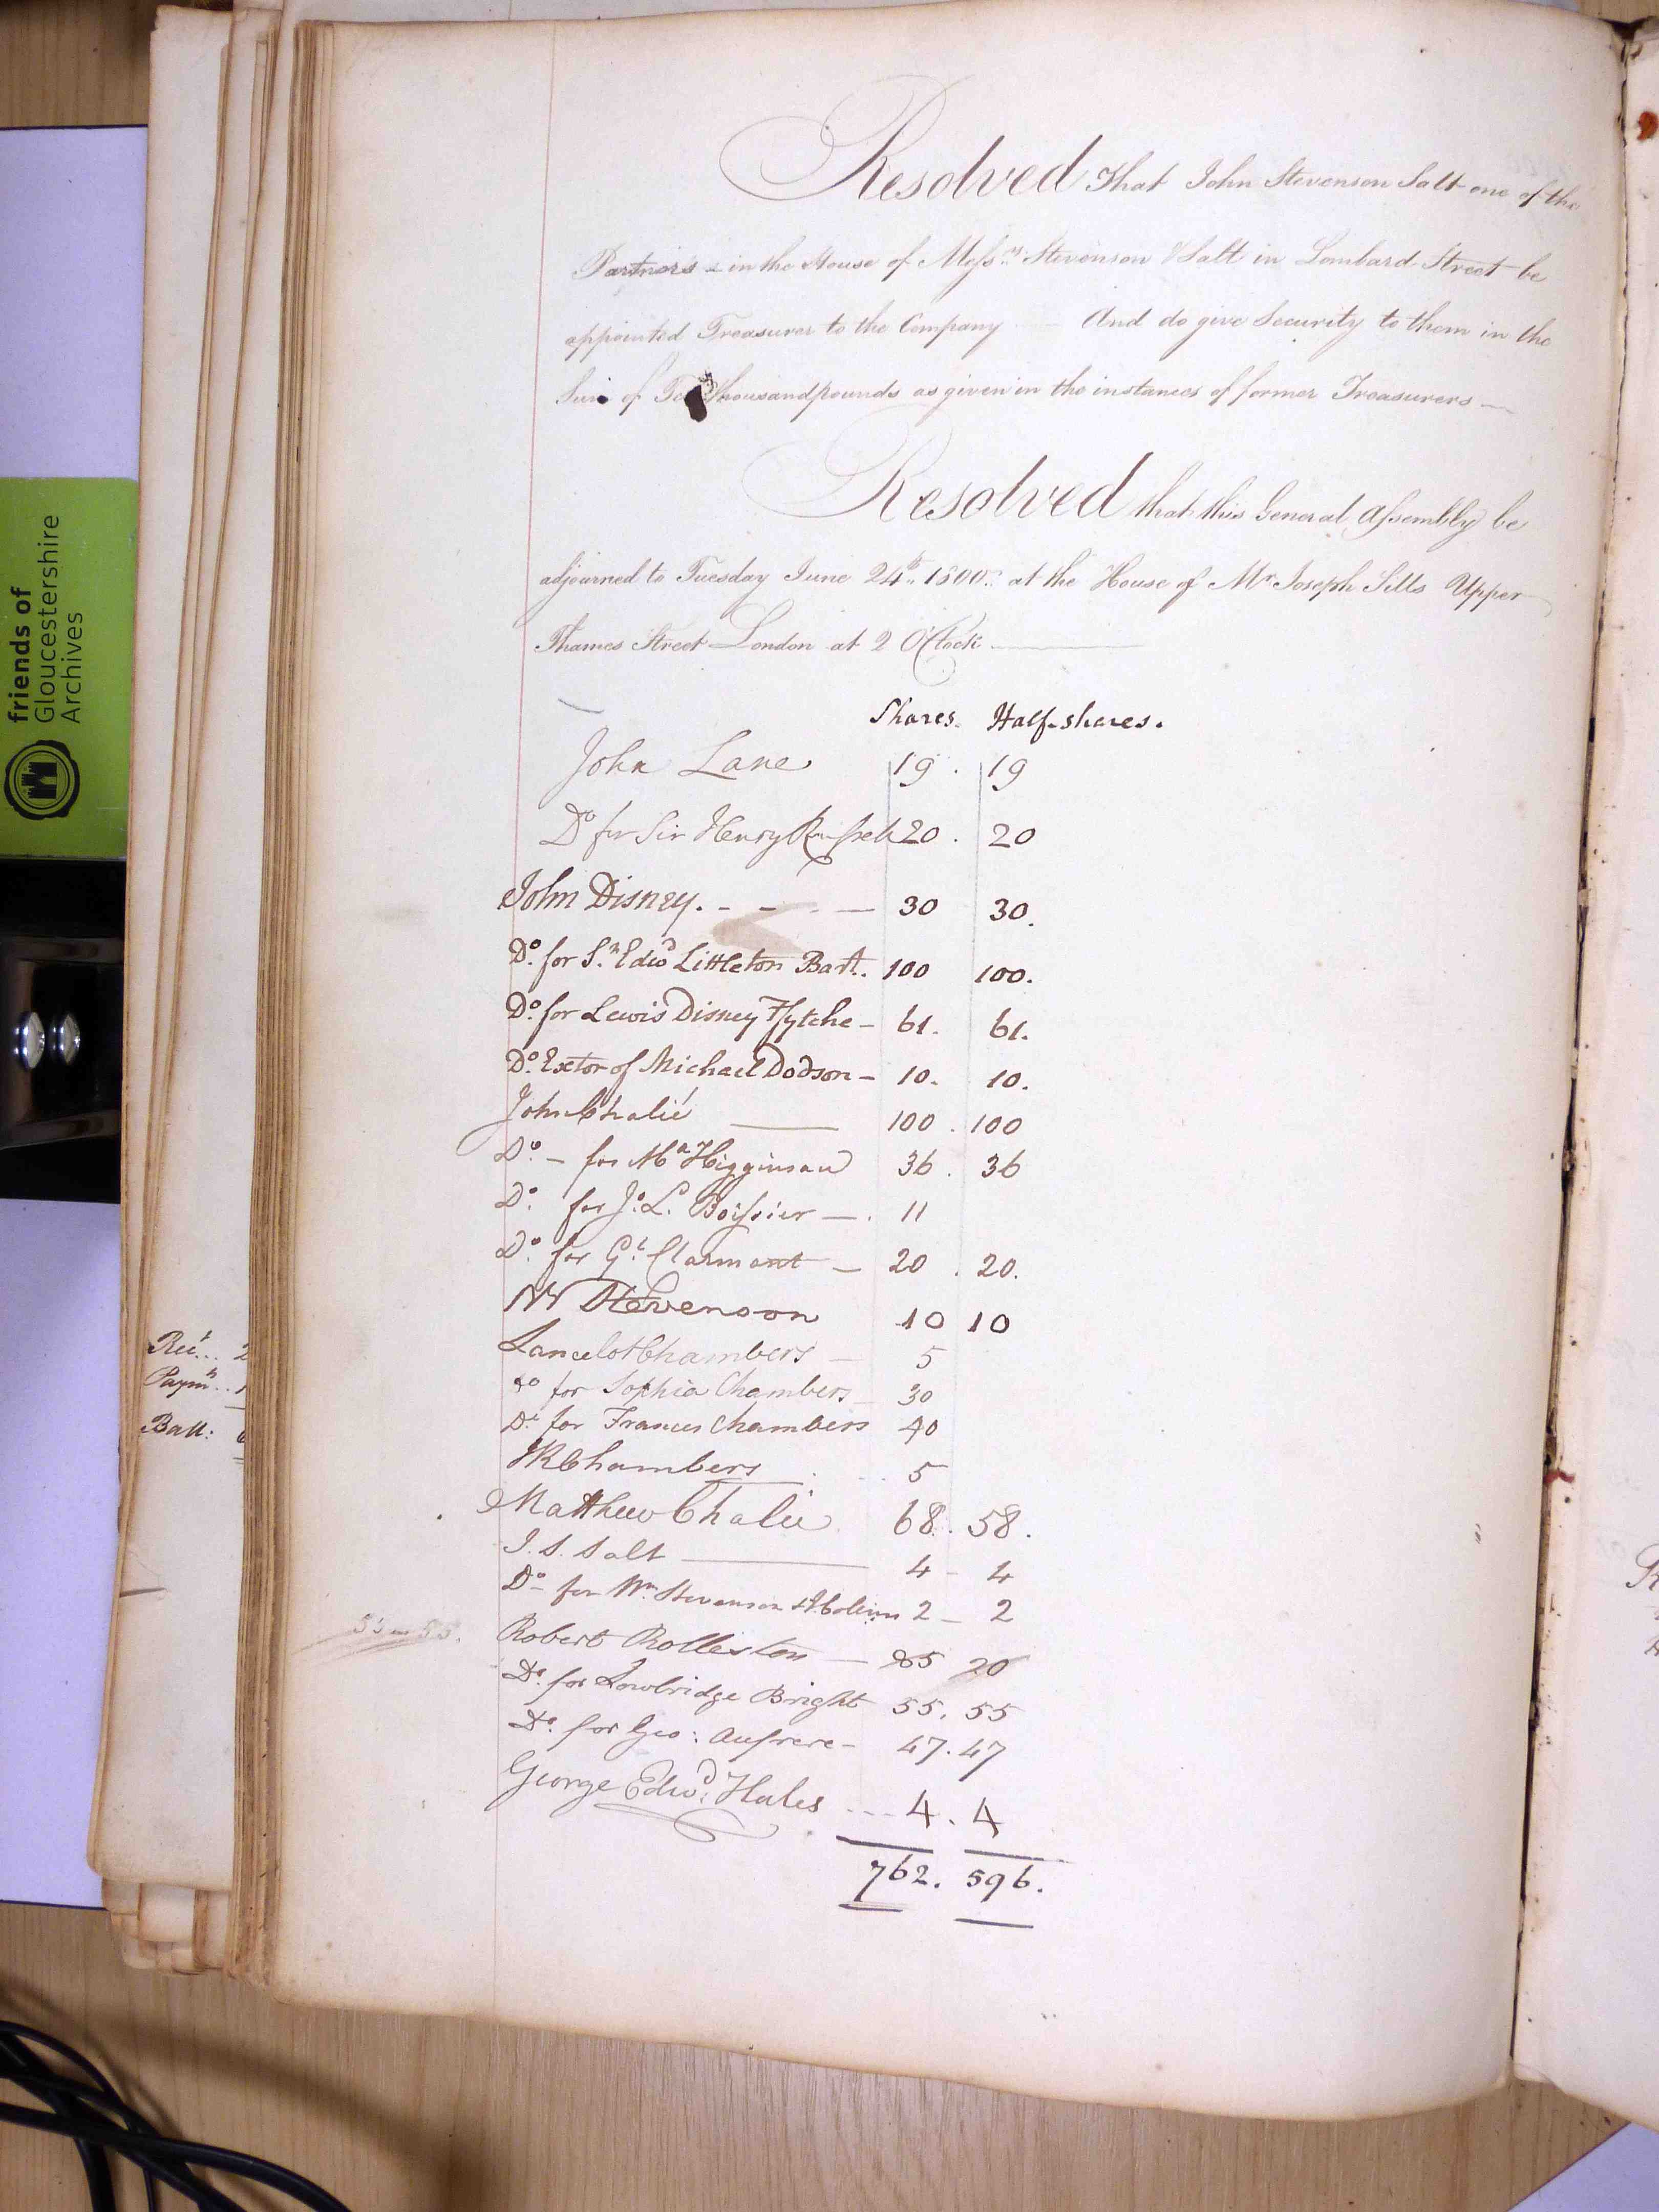 Resolved That John Stevenson Salt one of the
Partners in the House of Messrs. Stevenson & Salt in Lombard Street be
appointed Treasurer to the Company And do give Security to them in the
Sum of Ten Thousand pounds as given in the instances of former Treasurers
Resolved that this General Assembly be
adjourned to Tuesday June 24th. 1800 at the House of Mr. Joseph Sills Upper
Thames Street London at 2 O'Clock
Shares. Half-shares.
John Lane 19 . 19
Do for Sir Henry 20 . 20
John Disney. - - - 30 30.
Do. for Sr. Edwd Littleton Bart. 100 100.
Do. for Lewis Disney Ffytche - 61. 61.
Do. Exctor of Michael Dodson - 10. 10.
John Chalié 100 . 100
Do. - for Mr Higginson 36 . 36
Do. for J. L. Boissier - . 11
Do. for Gl. Clarmont - 20 . 20.
W Stevenson 10 10
Lancelot Chambers - 5
Do for Sophia Chambers - 30
Do. for Frances Chambers 40
Chambers 5
Matthew Chalié 68. 58.
J. S. Salt 4 - 4
Do - for Wm Stevenson 2 - 2
Robert Rolleston - 85 20
Do. for Lowbridge Bright 55. 55
Do. for Geo: Aufrere - 47. 47
George Edwd. Hales ... 4. 4
762. 596.
55 55.
Rec't... 2
Paymts..
Ball: 6
friends of
Gloucestershire
Archives